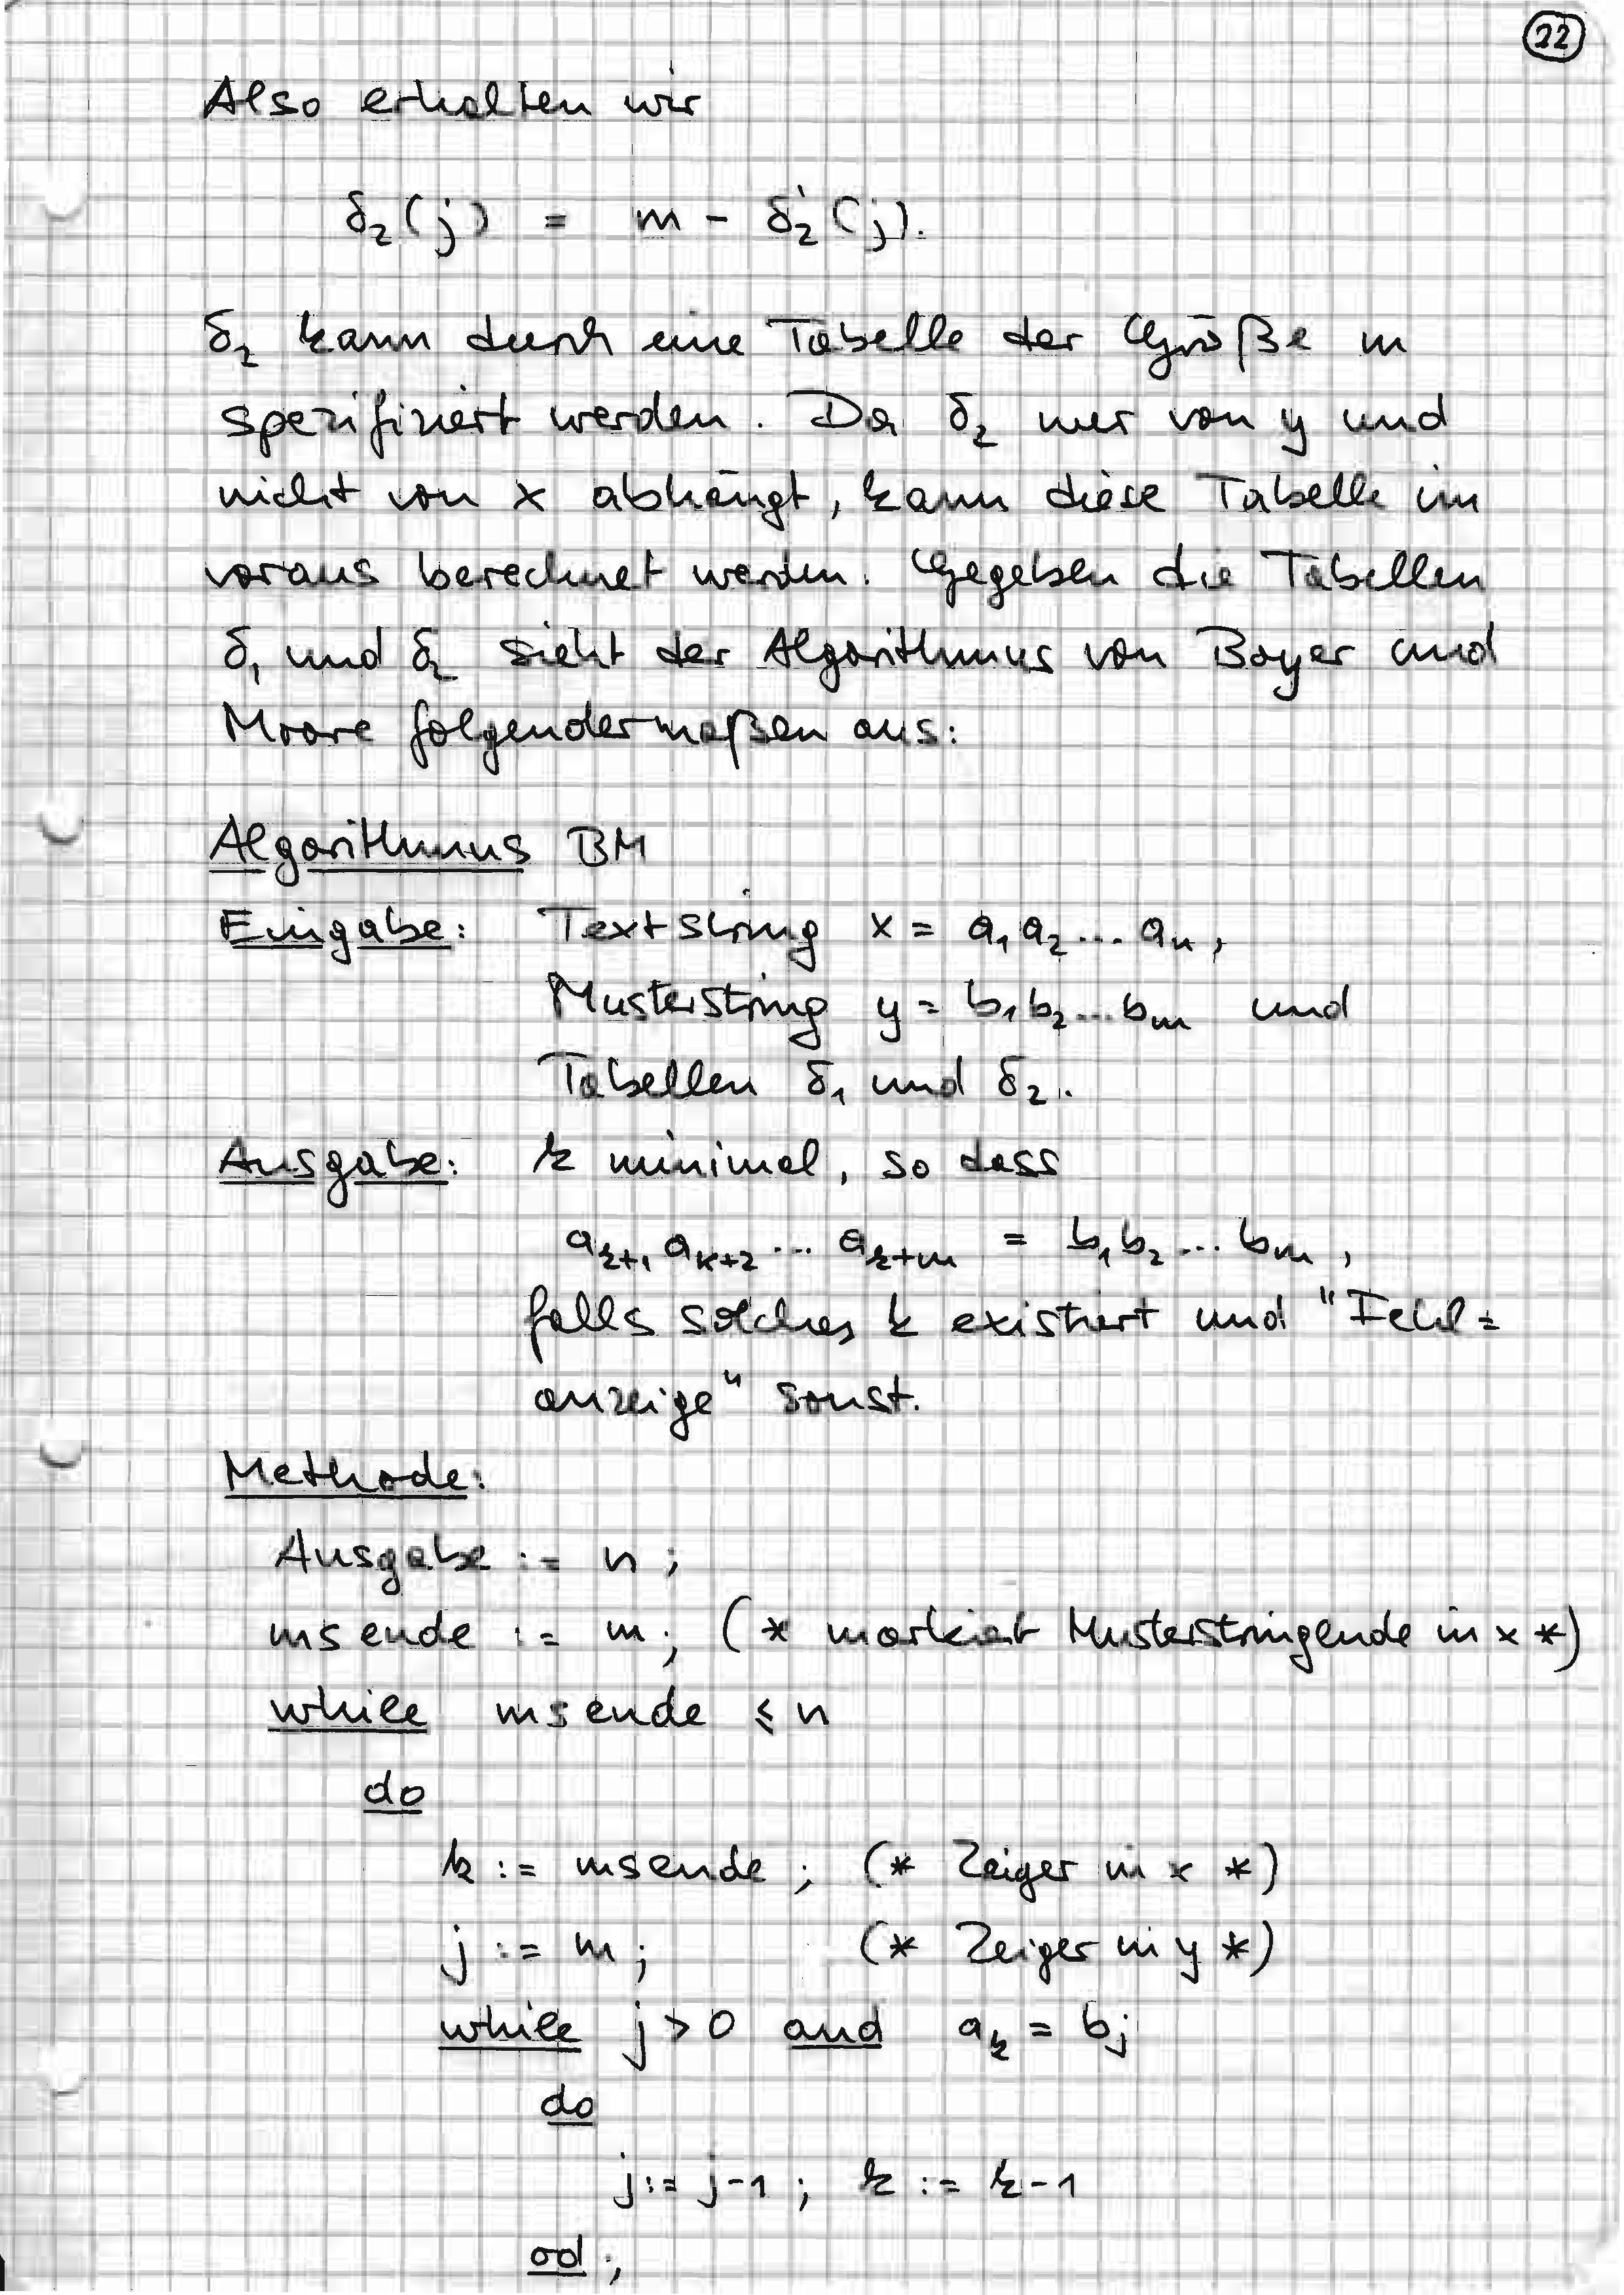 22
Also erhalten wir
δ₂(j) = m - δ₂'(j).
δ₂ kann durch eine Tabelle der Größe m
spezifiziert werden. Da δ₂ nur von y und
nicht von x abhängt, kann diese Tabelle im
voraus berechnet werden. Gegeben die Tabellen
δ₁ und δ₂ sieht der Algorithmus von Boyer und
Moore folgendermaßen aus:
Algorithmus BM
Eingabe: Textstring x = a₁a₂...aₙ,
Musterstring y = b₁b₂...bₘ und
Tabellen δ₁ und δ₂.
Ausgabe: k minimal, so dass
aₖ₊₁aₖ₊₂...aₖ₊ₘ = b₁b₂...bₘ,
falls solches k existiert und "Fehl=
anzeige" sonst.
Methode:
Ausgabe := n;
msende := m; (* markiert Musterstringende in x *)
while msende ≤ n
do
k := msende; (* Zeiger in x *)
j := m; (* Zeiger in y *)
while j > 0 and aₖ = bⱼ
do
j := j-1; k := k-1
od;